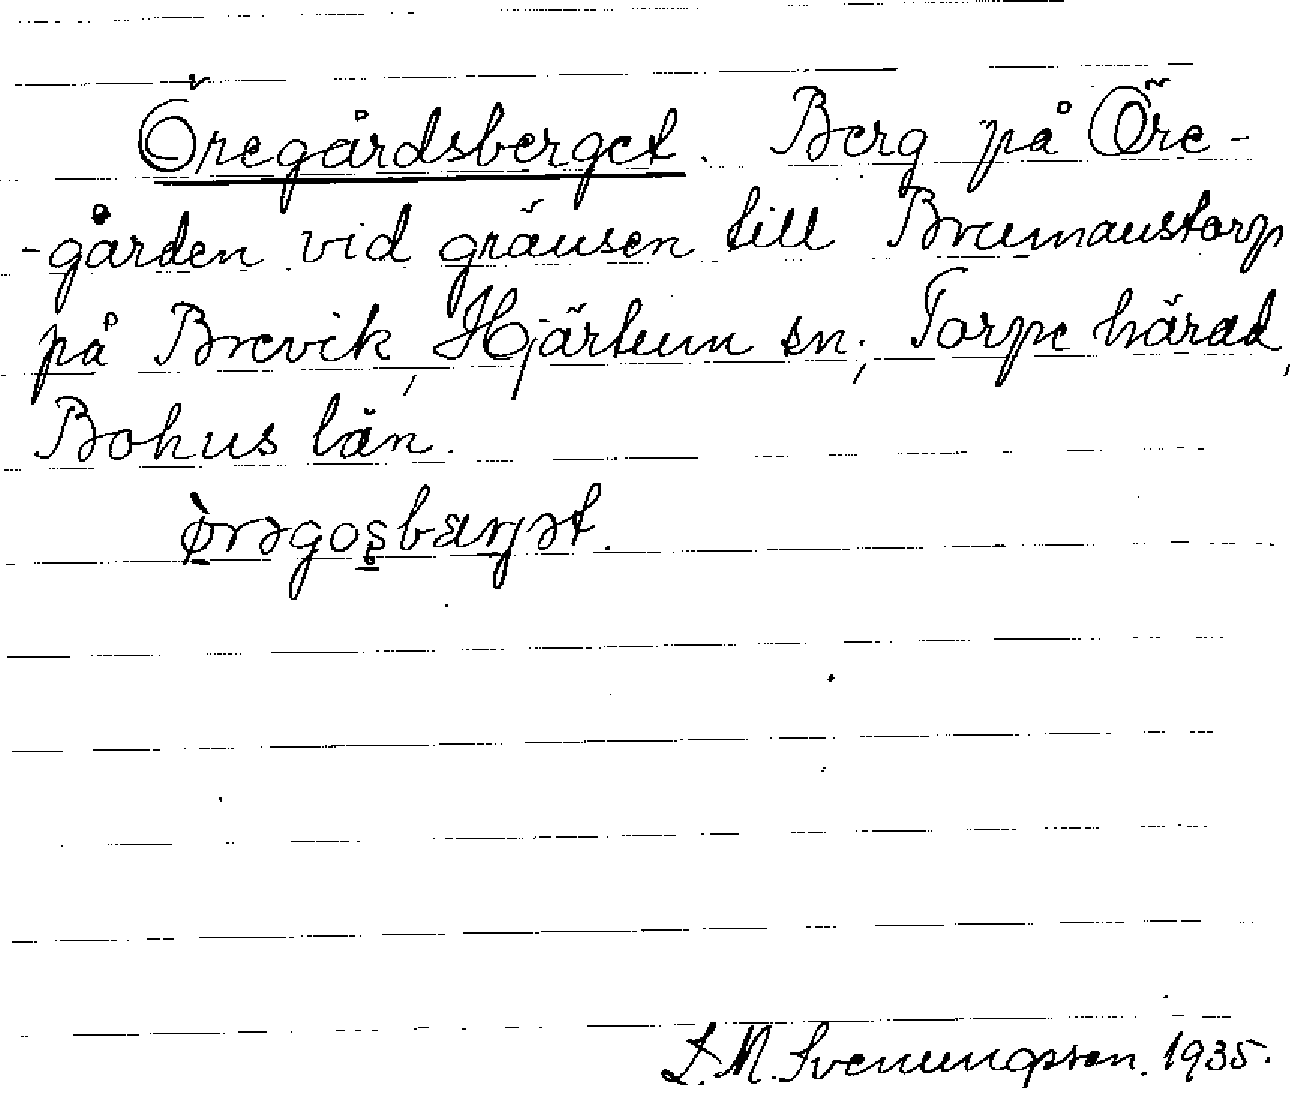 Öregårdsberget. Berg på Öre-
-gården vid gränsen till Brumanstorp
på Brevik, Hjärtum sn; Torpe härad,
Bohus län.
L. M. Svenungsson. 1935.